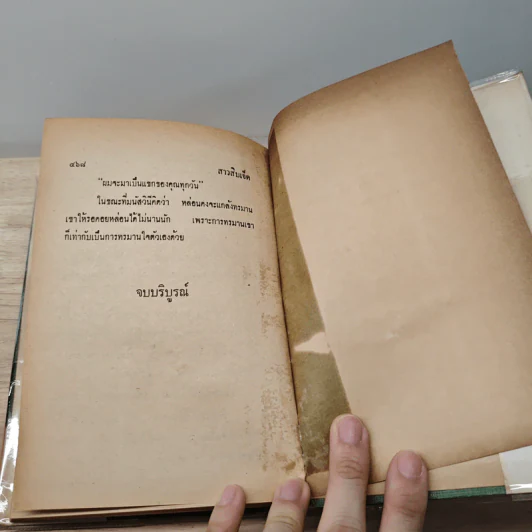 ๔๖๘
สาวสิบเจ็ด
"ผมจะมาเป็นแขกของคุณทุกวัน"
ในขณะที่มนัสวินีคิดว่า หล่อนคงจะแกล้งทรมาน
เขาให้รอคอยหล่อนได้ไม่นานนัก เพราะการทรมานเขา
ก็เท่ากับเป็นการทรมานใจตัวเองด้วย
จบบริบูรณ์